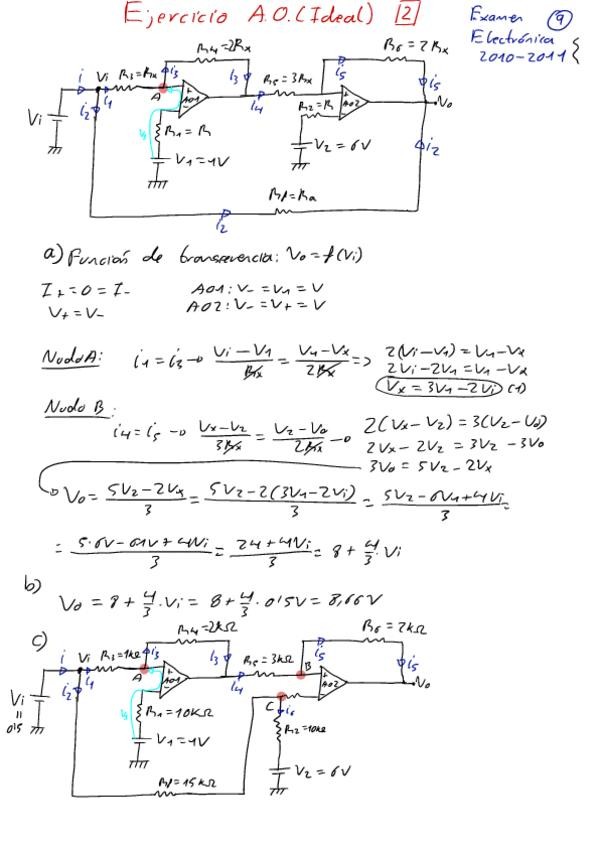 Ejercicio A.O.(Ideal) 2
Examen 9
Electrónica
2010-2011
R4=2Rx
R6=2Rx
i Vi R3=Rx i3
i3
R5=3Rx
i5
i5
i1
A
AO1
i4
R2=R
AO2
Vo
Vi
i2
R1=R
V1=1V
V2=6V
i2
Rf=Ra
i2
a) Función de transferencia: Vo=f(Vi)
I+=0=I-
AO1: V-=V1=V
V+=V-
AO2: V-=V+=V
Nudo A: i1=i3→ Vi-V1/Rx = V1-Vx/2Rx => 2(Vi-V1)=V1-Vx
2Vi-2V1=V1-Vx
Vx=3V1-2Vi (1)
Nudo B:
i4=i5 → Vx-V2/3Rx = V2-Vo/2Rx → 2(Vx-V2)=3(V2-Vo)
2Vx-2V2=3V2-3Vo
3Vo=5V2-2Vx
Vo= 5V2-2Vx/3 = 5V2-2(3V1-2Vi)/3 = 5V2-6V1+4Vi/3 =
= 5·6V-6·1V+4Vi/3 = 24+4Vi/3 = 8+4/3·Vi
b)
Vo = 8+4/3·Vi = 8+4/3·0'5V=8,66V
c)
R4=2kΩ
R6=2kΩ
i Vi R3=1kΩ i3
i3
R5=3kΩ
B
i5
i5
i2
i1
A
AO1
i4
AO2
Vo
C
i6
Vi
=
0'5
R1=10kΩ
R2=10kΩ
V1=1V
V2=6V
Rf=15kΩ